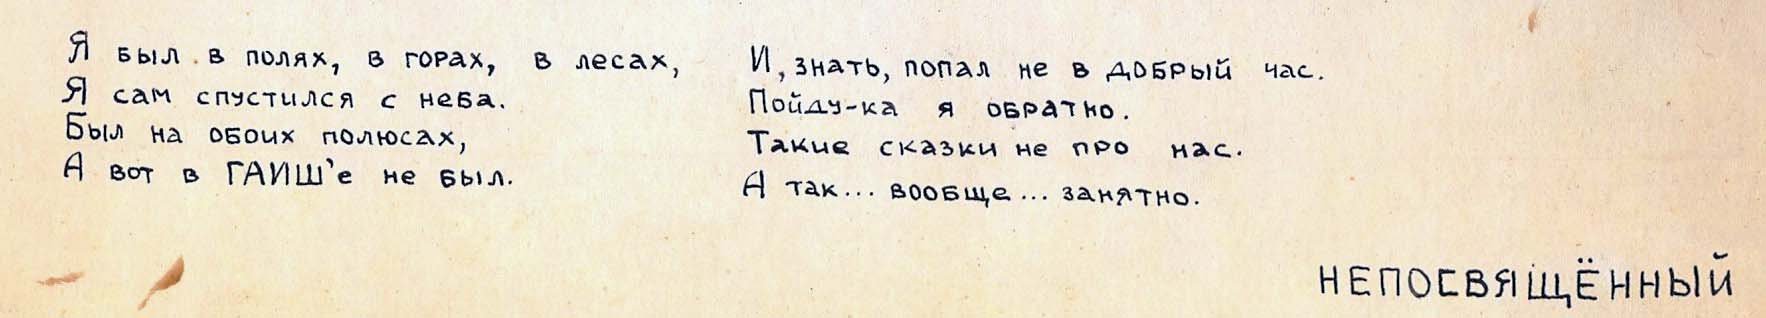 Я был в полях, в горах, в лесах,
Я сам спустился с неба.
Был на обоих полюсах,
А вот в ГАИШ'е не был.
И, знать, попал не в добрый час.
Пойду-ка я обратно.
Такие сказки не про нас.
А так... вообще... занятно.
НЕПОСВЯЩЁННЫЙ